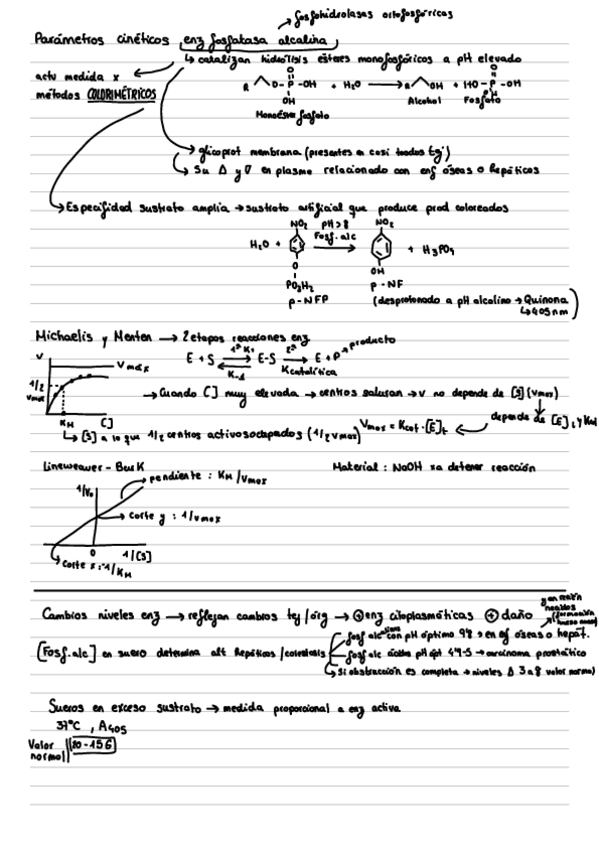 fosfohidrolasas ortofosfóricas
Parámetros cinéticos enz fosfatasa alcalina
catalizan hidrólisis ésteres monofosfóricos a pH elevado
actv medida x
métodos COLORIMÉTRICOS
R O-P-OH + H2O → R OH + HO-P-OH
O
OH
Alcohol Fosfato
Monoéster fosfato
glicoprot membrana (presentes en casi todos tej)
Su Δ y ∇ en plasma relacionado con enf óseas o hepáticas
Especifidad sustrato amplia → sustrato artificial que produce prod coloreados
NO2 pH > 8 NO2
H2O + Fosf. alc + H3PO4
O OH
PO3H2 p-NF
p-NFP (desprotonado a pH alcalino → Quinona)
405nm
Michaelis y Menten → 2 etapas reacciones enz
V Vmáx E + S 1ª K1 E-S 2ª E + P → producto
K-1 Kcatalítica
1/2 Vmax → Cuando [] muy elevada → centros saturan → v no depende de [S] (Vmax)
KM [] Vmax = Kcat · [E]t ← depende de [E]t y Kcat
[S] a la que 1/2 centros activos ocupados (1/2 Vmax)
Lineweaver - Burk Material: NaOH xa detener reacción
1/V0 pendiente: KM/Vmax
corte y: 1/Vmax
0 1/[S]
corte x: -1/KM
Cambios niveles enz → reflejan cambios tej/órg → ⊕ enz citoplasmáticas ⊕ daño
fosf alcalina con pH óptimo 9'8 → en enf óseas o hepát.
[Fosf. alc] en suero determina alt hepáticas / colestasis
fosf alc ácida pH ópt 4'9-5 → carcinoma prostático
Si obstrucción es completa → niveles Δ 3 a 8 valor normal
Sueros en exceso sustrato → medida proporcional a enz activa
37°C, A405
Valor normal